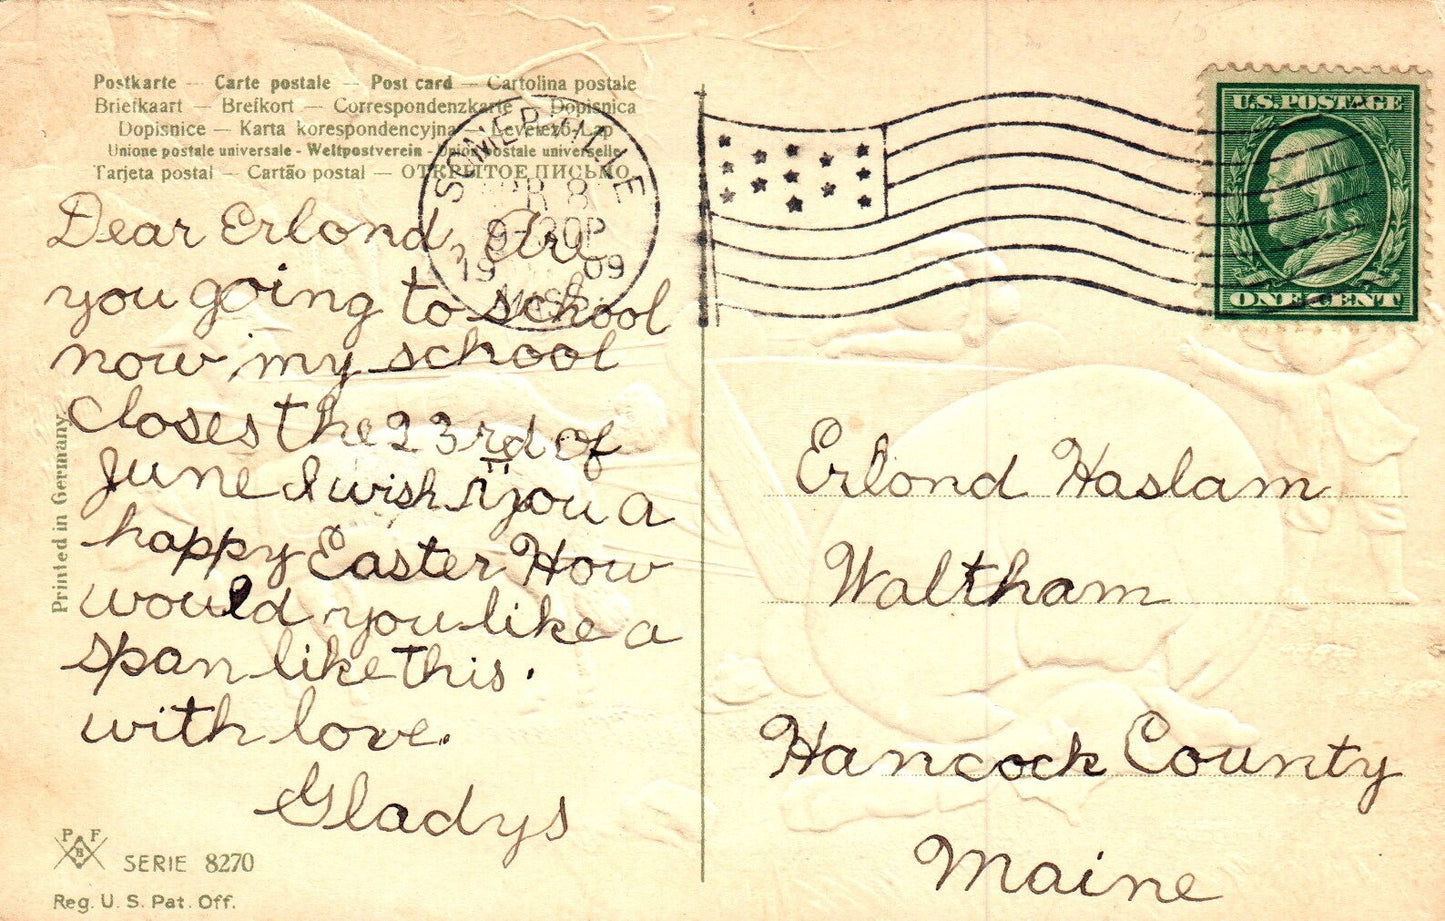 Postkarte — Carte postale — Post card — Cartolina postale
Briefkaart — Brefkort — Correspondenzkarte — Dopisnica
Dopisnice — Karta korespondencyjna — Levelező-Lap
Unione postale universale - Weltpostverein - Union postale universelle
Tarjeta postal — Cartão postal — ОТКРЫТОЕ ПИСЬМО
SOMERVILLE
APR 8
9-30P
1909
MASS.
U.S. POSTAGE
ONE CENT
Dear Erlond, Are
you going to school
now my school
closes the 23rd of
June I wish you a
happy Easter How
would you like a
span like this.
with love.
Gladys
Printed in Germany
P F
B
SERIE 8270
Reg. U. S. Pat. Off.
Erlond Haslam
Waltham
Hancock County
Maine